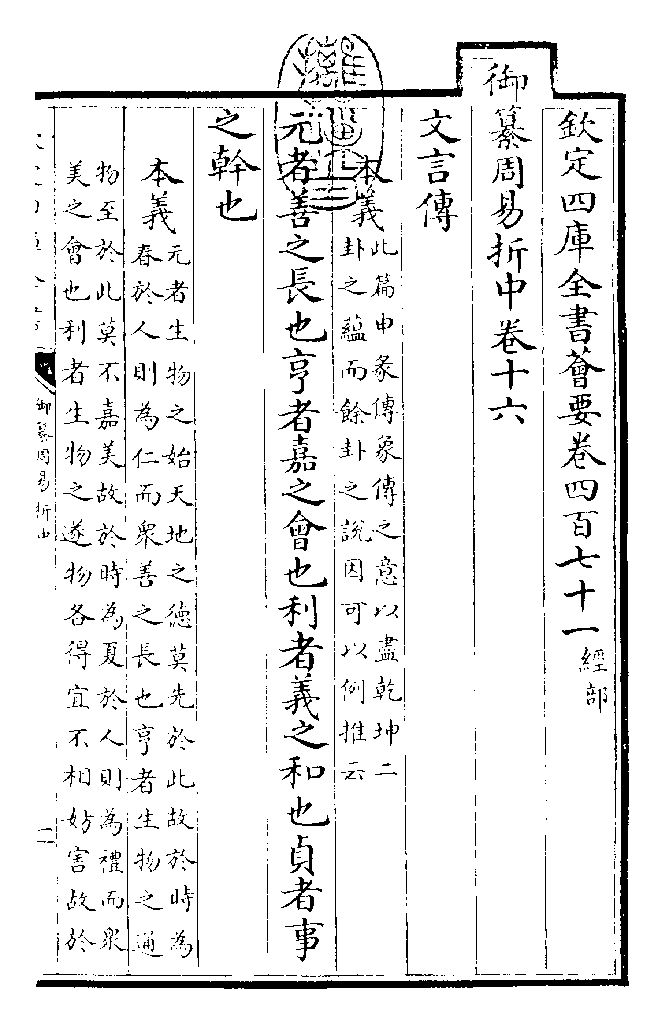 欽定四庫全書薈要卷四百七十一經部
御纂周易折中卷十六
文言傳
本義此篇申彖傳象傳之意以盡乾坤二
卦之蘊而餘卦之說因可以例推云
元者善之長也亨者嘉之會也利者義之和也貞者事
之幹也
本義元者生物之始天地之德莫先於此故於時為
春於人則為仁而衆善之長也亨者生物之通
物至於此莫不嘉美故於時為夏於人則為禮而衆
美之會也利者生物之遂物各得宜不相妨害故於
御纂周易折中